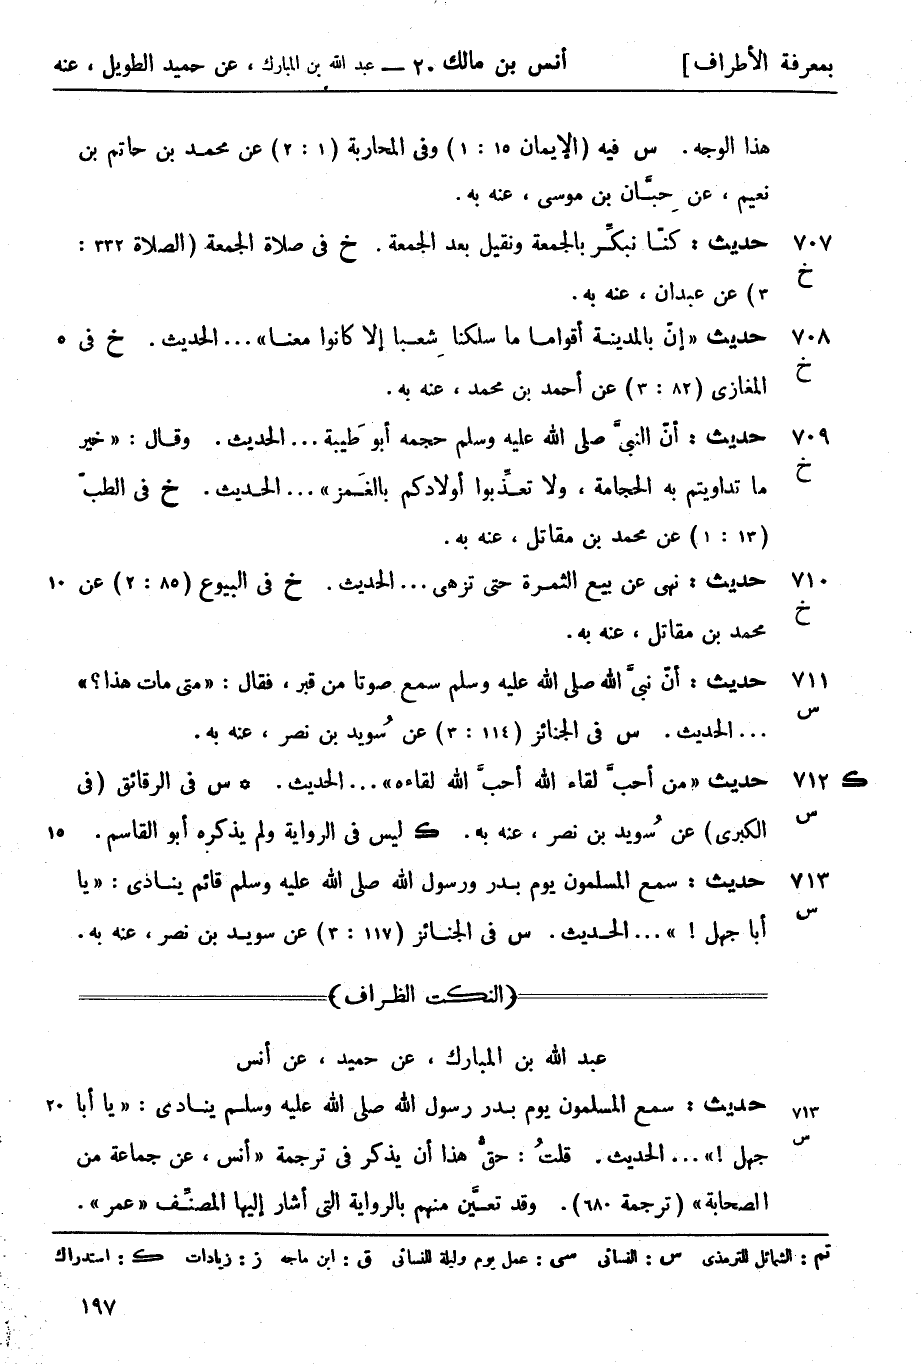 بمعرفة الأطراف] أنس بن مالك ٢٠ — عبد الله بن المبارك ، عن حميد الطويل ، عنه
هذا الوجه. س فيه (الإيمان ١٥ : ١) وفى المحاربة (١ : ٢) عن محمد بن حاتم بن
نعيم ، عن حِبَّان بن موسى ، عنه به.
٧٠٧ حديث : كنّا نبكِّر بالجمعة ونقيل بعد الجمعة. خ فى صلاة الجمعة (الصلاة ٣٣٢ :
خ
٣) عن عبدان ، عنه به.
٧٠٨ حديث «إنّ بالمدينة أقواما ما سلكنا شِعبا إلا كانوا معنا»...الحديث. خ فى ٥
خ
المغازى (٨٢ : ٣) عن أحمد بن محمد ، عنه به.
٧٠٩ حديث : أنّ النبيَّ صلى الله عليه وسلم حجمه أبو طَيبة...الحديث. وقال : «خير
خ
ما تداويتم به الحجامة ، ولا تعذِّبوا أولادكم بالغَمز»...الحديث. خ فى الطبّ
(١٣ : ١) عن محمد بن مقاتل ، عنه به.
٧١٠ حديث : نهى عن بيع الثمرة حتى تزهى...الحديث. خ فى البيوع (٨٥ : ٢) عن ١٠
خ
محمد بن مقاتل ، عنه به.
٧١١ حديث : أنّ نبيَّ الله صلى الله عليه وسلم سمع صوتا من قبر ، فقال : «متى مات هذا؟»
س
...الحديث. س فى الجنائز (١١٤ : ٣) عن سُويد بن نصر ، عنه به.
ك ٧١٢ حديث «من أحبَّ لقاء الله أحبَّ الله لقاءه»...الحديث. * س فى الرقائق (فى
س
الكبرى) عن سُويد بن نصر ، عنه به. ك ليس فى الرواية ولم يذكره أبو القاسم. ١٥
٧١٣ حديث : سمع المسلمون يوم بدر ورسول الله صلى الله عليه وسلم قائم ينادى : «يا
س
أبا جهل ! »...الحديث. س فى الجنائز (١١٧ : ٣) عن سويد بن نصر ، عنه به.
(النكت الظراف)
عبد الله بن المبارك ، عن حميد ، عن أنس
٧١٣ حديث : سمع المسلمون يوم بدر رسول الله صلى الله عليه وسلم ينادى : «يا أبا ٢٠
س
جهل !»...الحديث. قلتُ : حقُّ هذا أن يذكر فى ترجمة «أنس ، عن جماعة من
الصحابة» (ترجمة ٦٨٠). وقد تعيَّن منهم بالرواية التى أشار إليها المصنِّف «عمر».
تم : الشمائل للترمذى س : النسائى سى : عمل يوم وليلة للنسائى ق : ابن ماجه ز : زيادات ك : استدراك
١٩٧